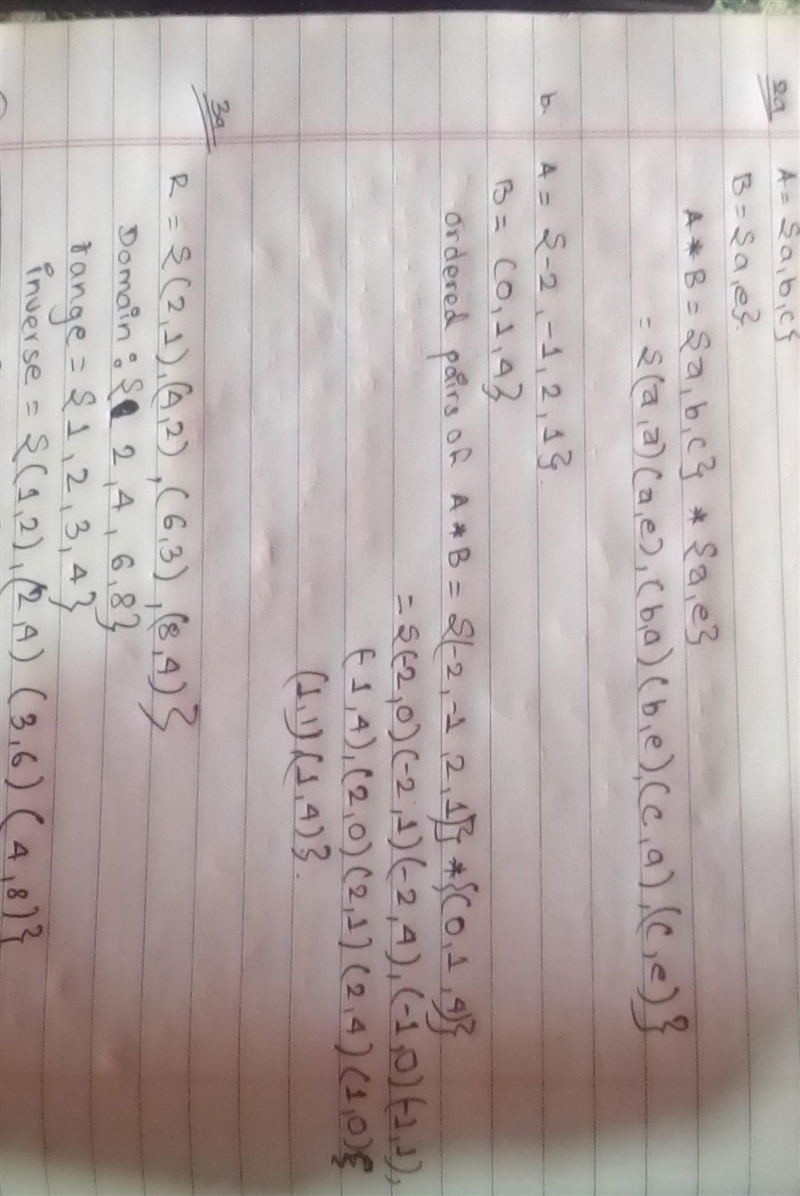 2a A = {a,b,c}
B = {a,e}.
A * B = {a,b,c} * {a,e}
= {(a,a) (a,e), (b,a) (b,e), (c,a), (c,e)}
b. A = {-2, -1, 2, 1}.
B = (0, 1, 4}
ordered pairs of A * B = {(-2, -1, 2, 1)} * {(0, 1, 4)}
= {(-2,0) (-2,1) (-2,4), (-1,0) (-1,1),
(-1,4), (2,0) (2,1) (2,4) (1,0)
(1,1) (1,4)}.
3a R = {(2,1), (4,2), (6,3), (8,4)}
Domain : { 2, 4, 6, 8}
range = {1, 2, 3, 4}
inverse = {(1,2), (2,4) (3,6) (4,8)}